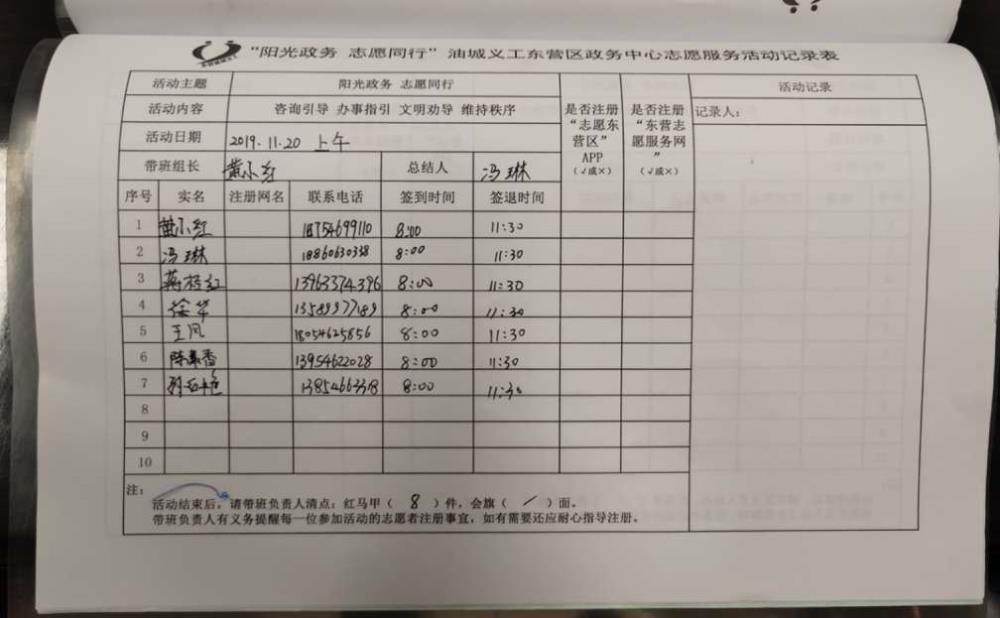 “阳光政务 志愿同行”油城义工东营区政务中心志愿服务活动记录表
活动主题 阳光政务 志愿同行 活动记录
活动内容 咨询引导 办事指引 文明劝导 维持秩序 是否注册“志愿东营区”APP（√或×） 是否注册“东营志愿服务网”（√或×） 记录人：
活动日期 2019.11.20 上午
带班组长 黄小红 总结人 冯琳
序号 实名 注册网名 联系电话 签到时间 签退时间
1 黄小红 18754699110 8:00 11:30
2 冯琳 18860630338 8:00 11:30
3 13963374396 8:00 11:30
4 徐华 13589977189 8:00 11:30
5 王凤 18054625856 8:00 11:30
6 13954622028 8:00 11:30
7 13854663318 8:00 11:30
8
9
10
注：
活动结束后，请带班负责人清点：红马甲（ 8 ）件，会旗（ / ）面。
带班负责人有义务提醒每一位参加活动的志愿者注册事宜，如有需要还应耐心指导注册。